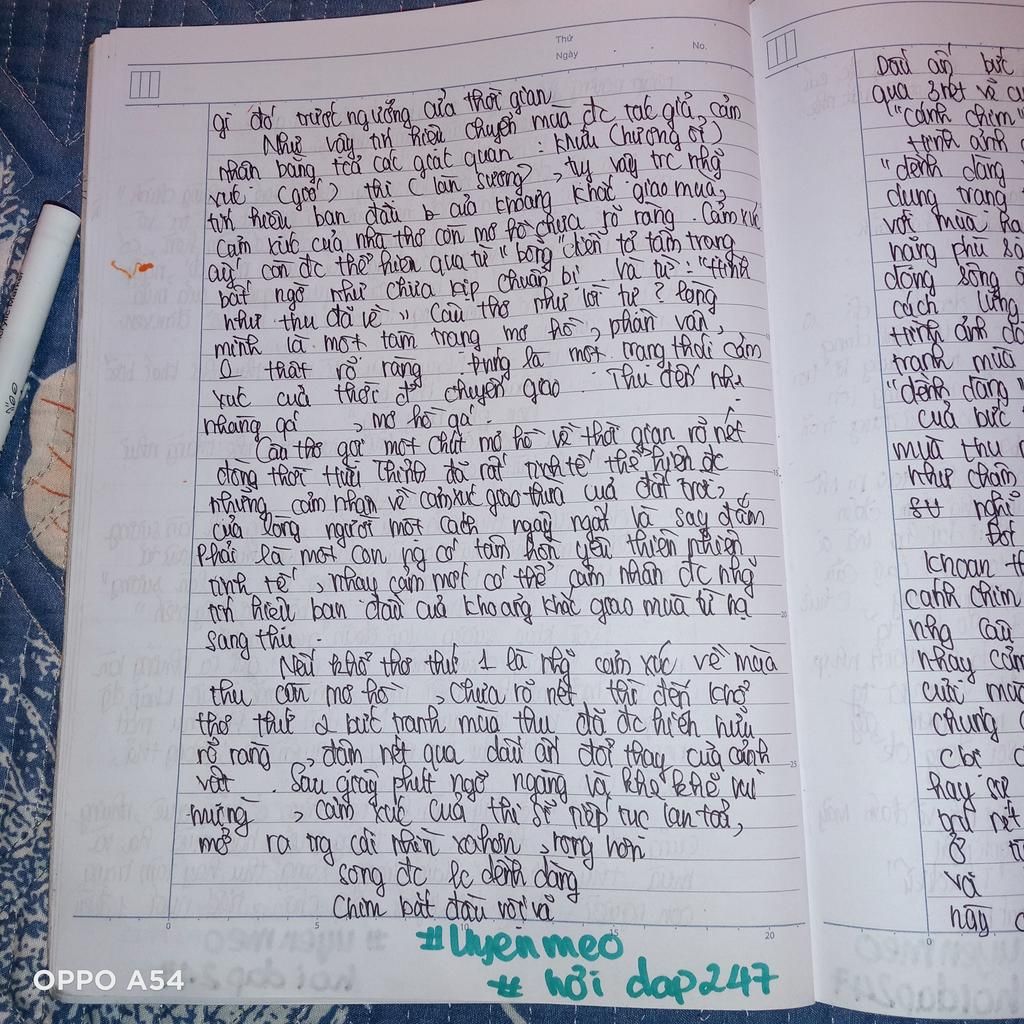 Thứ
Ngày
No.
gì đó trước ngưỡng cửa thời gian
Như vậy tín hiệu chuyển mùa đc tác giả cảm
nhận bằng tất các giác quan : khứu (hương ổi)
xúc (gió) thị (làn sương), tuy vậy trc nhg
tín hiệu ban đầu của khoảng khắc giao mùa,
cảm xúc của nhà thơ còn mơ hồ chưa rõ ràng . Cảm xúc
ấy còn đc thể hiện qua từ "bỗng" diễn tả tâm trạng
bất ngờ như chưa kịp chuẩn bị và từ : "Hình
như thu đã về" Câu thơ như lời tự ? lòng
mình là một tâm trạng mơ hồ, phân vân,
0 thật rõ ràng . Đúng là một trạng thái cảm
xúc của thời đ chuyển giao . Thu đến nhẹ
nhàng qá , mơ hồ qá .
Câu thơ gợi một chút mơ hồ về thời gian rõ nét
đồng thời Hữu Thỉnh đã rất tinh tế thể hiện đc
những cảm nhận về cảm xúc giao thừa của đất trời,
của lòng người một cách ngây ngất và say đắm
Phải là một con ng có tâm hồn yêu thiên nhiên
tinh tế , nhạy cảm mới có thể cảm nhận đc nhg
tín hiệu ban đầu của khoảng khắc giao mùa từ hạ
sang thu .
Nếu khổ thơ thứ 1 là nhg cảm xúc về mùa
thu còn mơ hồ , chưa rõ nét thì đến khổ
thơ thứ 2 bức tranh mùa thu đã đc hiện hữu
rõ ràng , đậm nét qua dấu ấn đổi thay của cảnh
vật . Sau giây phút ngỡ ngàng và khe khẽ vui
mừng , cảm xúc của thi sĩ tiếp tục lan toả,
mở ra trg cái nhìn xa hơn , rộng hơn
Sông đc lc dềnh dàng
Chim bắt đầu vội vã
#Uyenmeo
# hỏi dap247
OPPO A54
Dấu ấn bức
qua 3 nét vẽ
"cánh chim"
Hình ảnh
"dềnh dàng
dung trang
với mùa
nặng phù sa
dòng sông
cách lửng
Hình ảnh
tranh mùa
"dềnh dàng"
của bức
mùa thu
như chậm
nghỉ
Đợt
khoan
cánh chim
nhg câu
nhạy cảm
cuối mùa
chung
cbị
hay sự
và
này